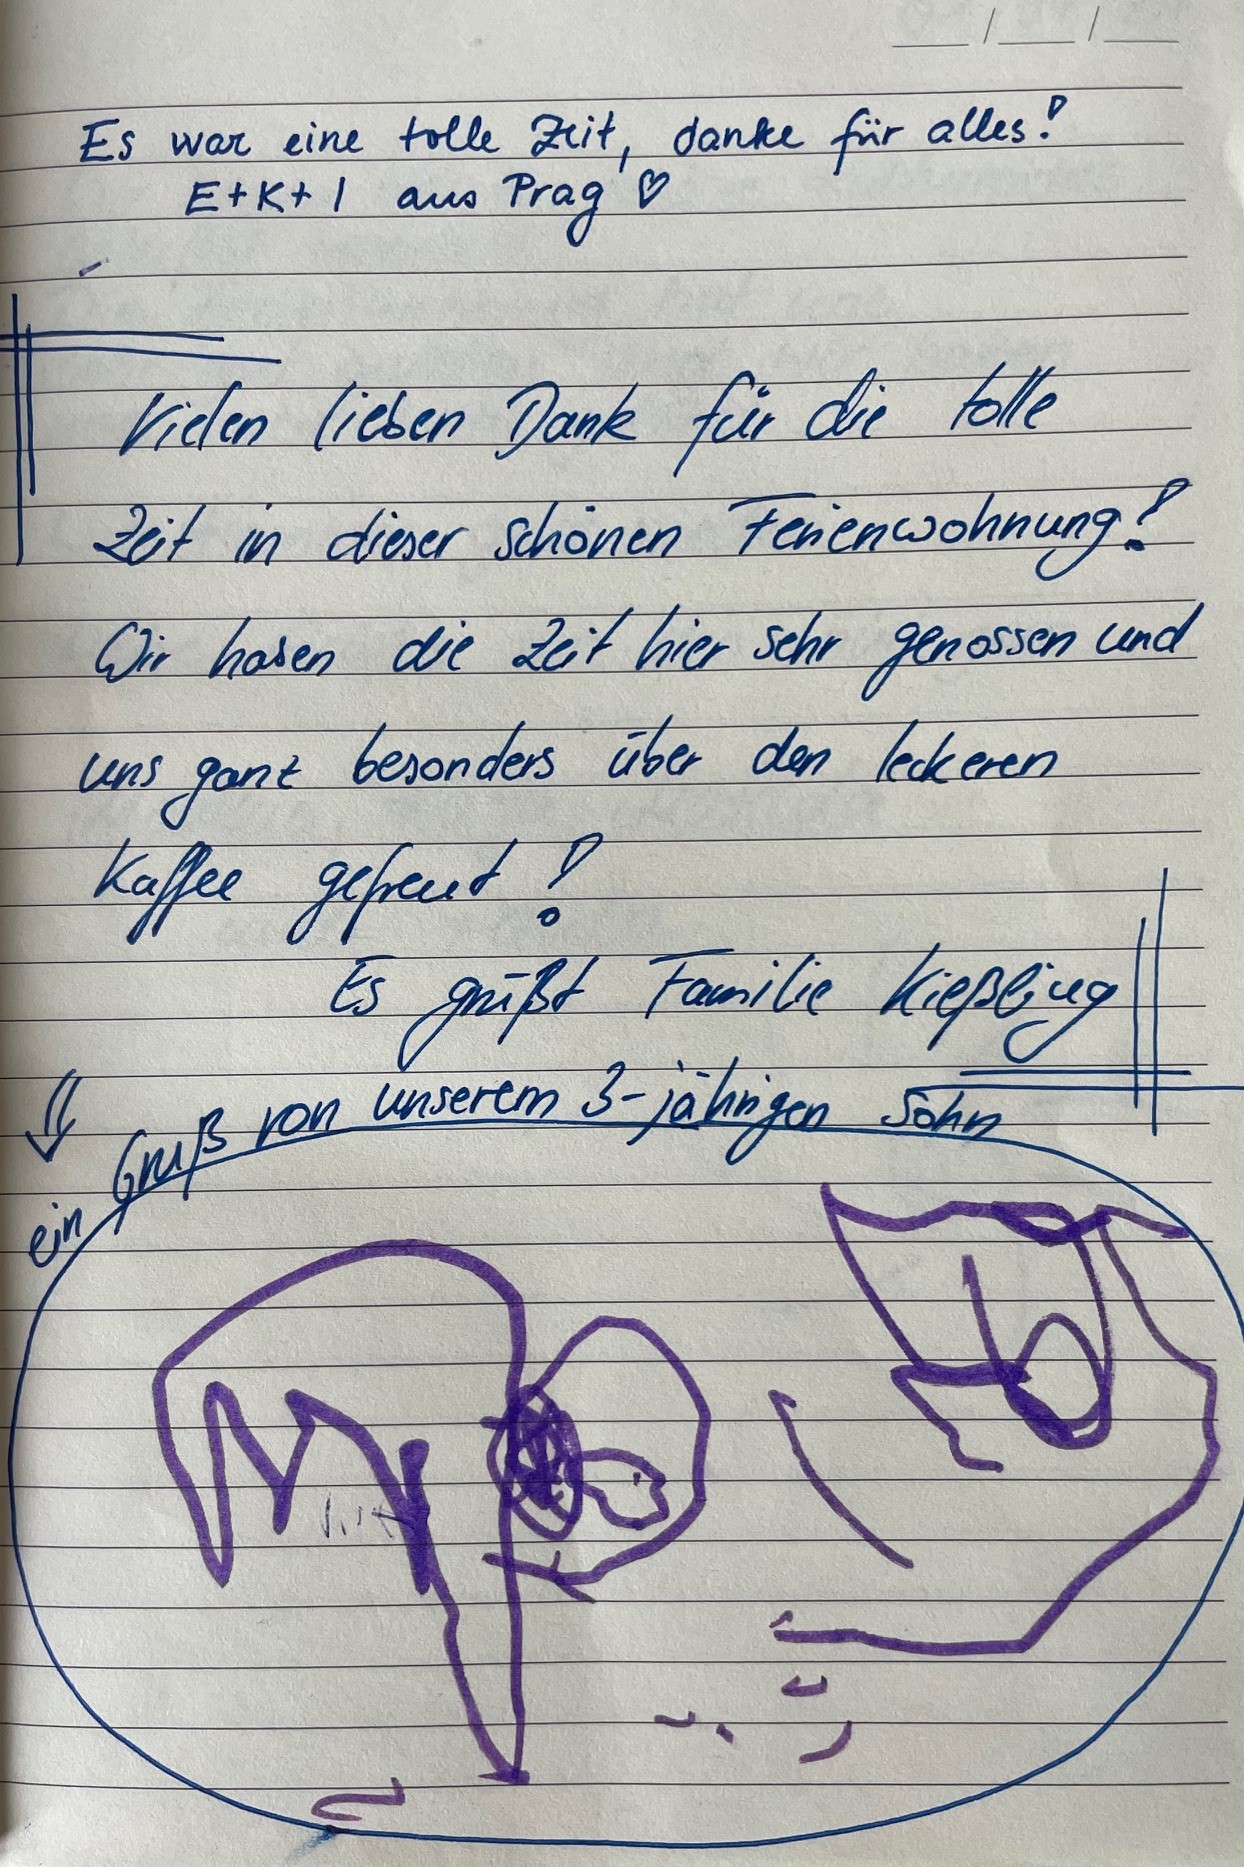 Es war eine tolle Zeit, danke für alles!
E+K+1 aus Prag ♡
Vielen lieben Dank für die tolle
Zeit in dieser schönen Ferienwohnung!
Wir haben die Zeit hier sehr genossen und
uns ganz besonders über den leckeren
Kaffee gefreut!
Es grüßt Familie Kießling
ein Gruß von unserem 3-jährigen Sohn